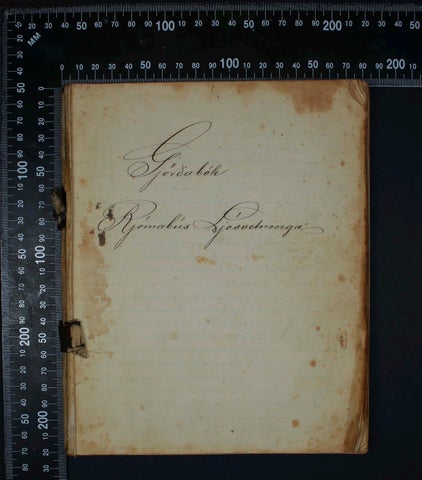 Gjörðabók
Rjómabús Ljósvetninga